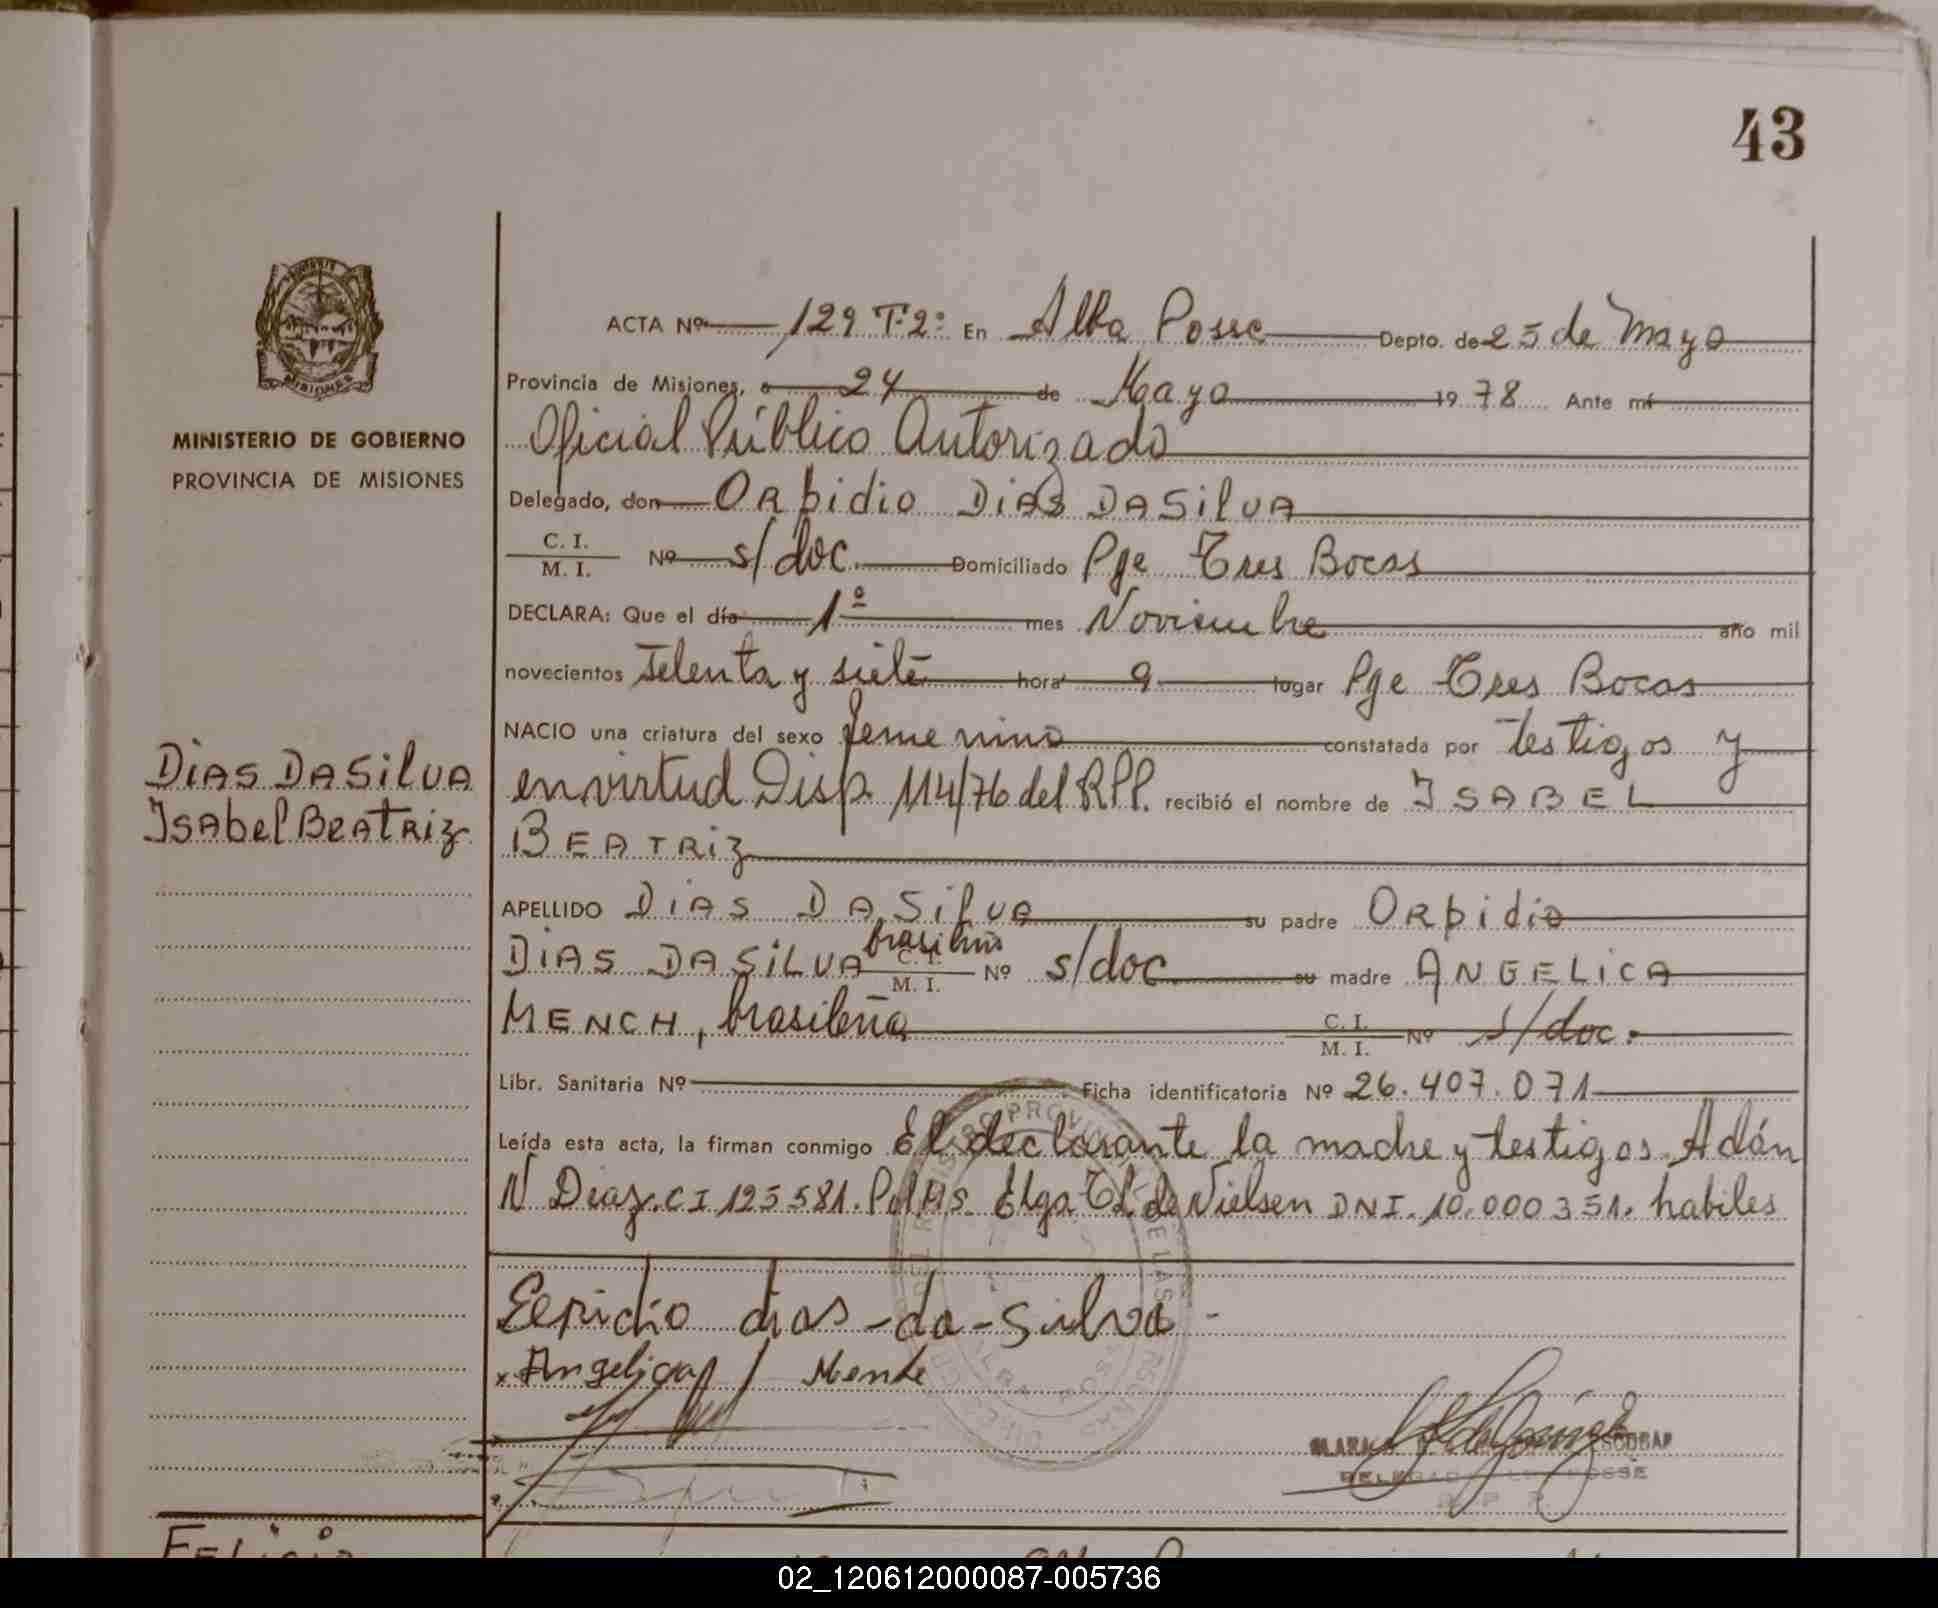 43
MISIONES
MINISTERIO DE GOBIERNO
PROVINCIA DE MISIONES
DIAS DA SilVA
ISAbel BEATRIZ
ACTA Nº 129 T-2º En Alba Posse Depto. de 25 de Mayo
Provincia de Misiones, a 24 de Mayo 1978 Ante mí
Oficial Público Autorizado
Delegado, don ORbidio DIAS DA SilVA
C. I.
M. I. Nº s/doc. Domiciliado Pje Tres Bocas
DECLARA: Que el día 1º mes Noviembre año mil
novecientos setenta y siete hora 9 lugar Pje Tres Bocas
NACIO una criatura del sexo femenino constatada por testigos y
en virtud Disp. 114/76 del RPP. recibió el nombre de ISABEL
BEATRIZ
APELLIDO DIAS DA SilVA su padre ORbidio
DIAS DA SILVA brasileño C. I.
M. I. Nº s/doc. su madre ANGELICA
MENCH, brasileña C. I.
M. I. Nº s/doc.
Libr. Sanitaria Nº Ficha identificatoria Nº 26.407.071
Leída esta acta, la firman conmigo El declarante la madre y testigos Adán
N Diaz. CI 125581. Pol Mis. Elga de Nielsen DNI. 10.000351. habiles
dias-da-Silva
x Angelica
ESCOBAR
02_120612000087-005736